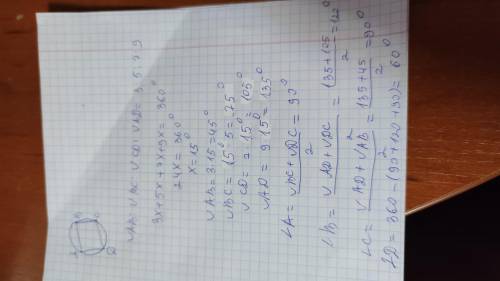 ∪AB:∪BC:∪CD:∪AD = 3:5:7:9
3x+5x+7x+9x = 360°
24x = 360°
x = 15°
∪AB = 3·15 = 45°
∪BC = 15°·5 = 75°
∪CD = 7·15° = 105°
∪AD = 9·15° = 135°
∠A = (∪BC+∪DC)/2 = 90°
∠B = (∪AD+∪DC)/2 = (135+105)/2 = 120°
∠C = (∪AD+∪AB)/2 = (135+45)/2 = 90°
∠D = 360-(90+120+90) = 60°